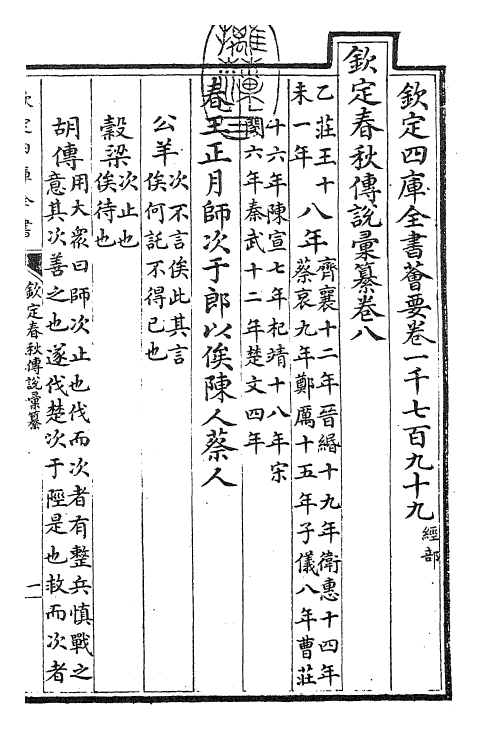 欽定四庫全書薈要卷一千七百九十九 經部
欽定春秋傳說彙纂卷八
乙未 莊王十一年
八年
齊襄十二年晉緡十九年衛惠十四年
蔡哀九年鄭厲十五年子儀八年曹莊
十六年陳宣七年杞靖十八年宋
閔六年秦武十二年楚文四年
春王正月師次于郎以俟陳人蔡人
公羊
次不言俟此其言
俟何託不得已也
穀梁
次止也
俟待也
胡傳
用大衆曰師次止也伐而次者有整兵慎戰之
意其次善之也遂伐楚次于陘是也救而次者
欽定四庫全書
欽定春秋傳說彙纂
一